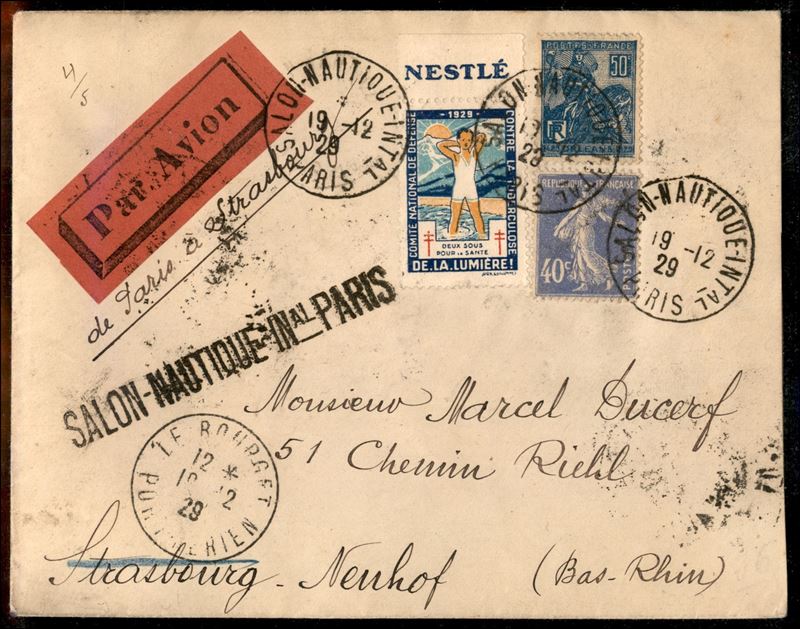 4/5
Par Avion
de Paris à Strasbourg
SALON-NAUTIQUE-INTAL
19 -12
29
PARIS
NESTLÉ
1929
COMITÉ NATIONAL DE DÉFENSE
CONTRE LA TUBERCULOSE
DEUX SOUS
POUR LA SANTÉ
DE.LA.LUMIÈRE!
POSTES FRANCE
50c
RF
ORLEANS
SALON-NAUT
19
29
PARIS
REPUBLIQUE FRANÇAISE
40c
POSTES
SALON-NAUTIQUE-INTAL
19 -12
29
PARIS
SALON-NAUTIQUE-INAL PARIS
Monsieur Marcel Ducerf
51 Chemin Riehl
LE BOURGET
12 *
12
29
PORT AERIEN
Strasbourg - Neuhof (Bas-Rhin)